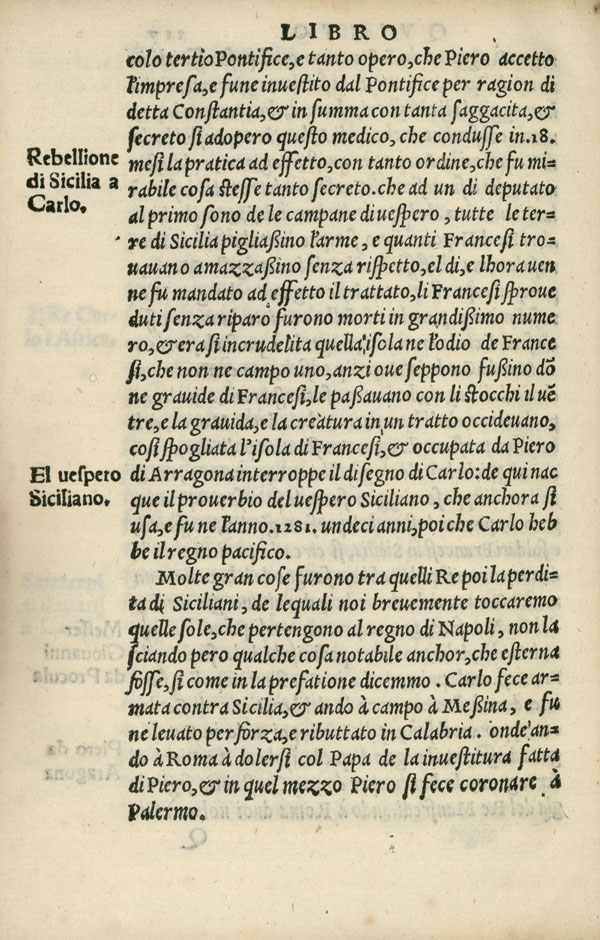 LIBRO
colo tertio Pontifice, e tanto opero, che Piero accetto
l'impresa, e fune inuestito dal Pontifice per ragion di
detta Constantia, & in summa con tanta saggacita, &
secreto si adopero questo medico, che condusse in .18.
Rebellione
di Sicilia a
Carlo.
mesi la pratica ad effetto, con tanto ordine, che fu mi=
rabile cosa stesse tanto secreto. che ad un di deputato
al primo sono de le campane di uespero, tutte le ter=
re di Sicilia pigliaßino l'arme, e quanti Francesi tro=
uauano amazzaßino senza rispetto, el di, e lhora uen
ne fu mandato ad effetto il trattato, li Francesi sproue
duti senza riparo furono morti in grandißimo nume
ro, & era si incrudelita quella isola ne l'odio de France
si, che non ne campo uno, anzi oue seppono fußino dõ
ne grauide di Francesi, le paßauano con li stocchi il uẽ
tre, e la grauida, e la creatura in un tratto occideuano,
cosi spogliata l'isola di Francesi, & occupata da Piero
El uespero
Siciliano.
di Arragona interroppe il disegno di Carlo: de qui nac
que il prouerbio del uespero Siciliano, che anchora si
usa, e fu ne l'anno .1281. undeci anni, poi che Carlo heb
be il regno pacifico.
Molte gran cose furono tra quelli Re poi la perdi=
ta di Siciliani, de lequali noi breuemente toccaremo
quelle sole, che pertengono al regno di Napoli, non la
sciando pero qualche cosa notabile anchor, che esterna
fosse, si come in la prefatione dicemmo. Carlo fece ar=
mata contra Sicilia, & ando à campo à Meßina, e fu
ne leuato per forza, e ributtato in Calabria. onde an=
do à Roma à dolersi col Papa de la inuestitura fatta
di Piero, & in quel mezzo Piero si fece coronare à
Palermo.